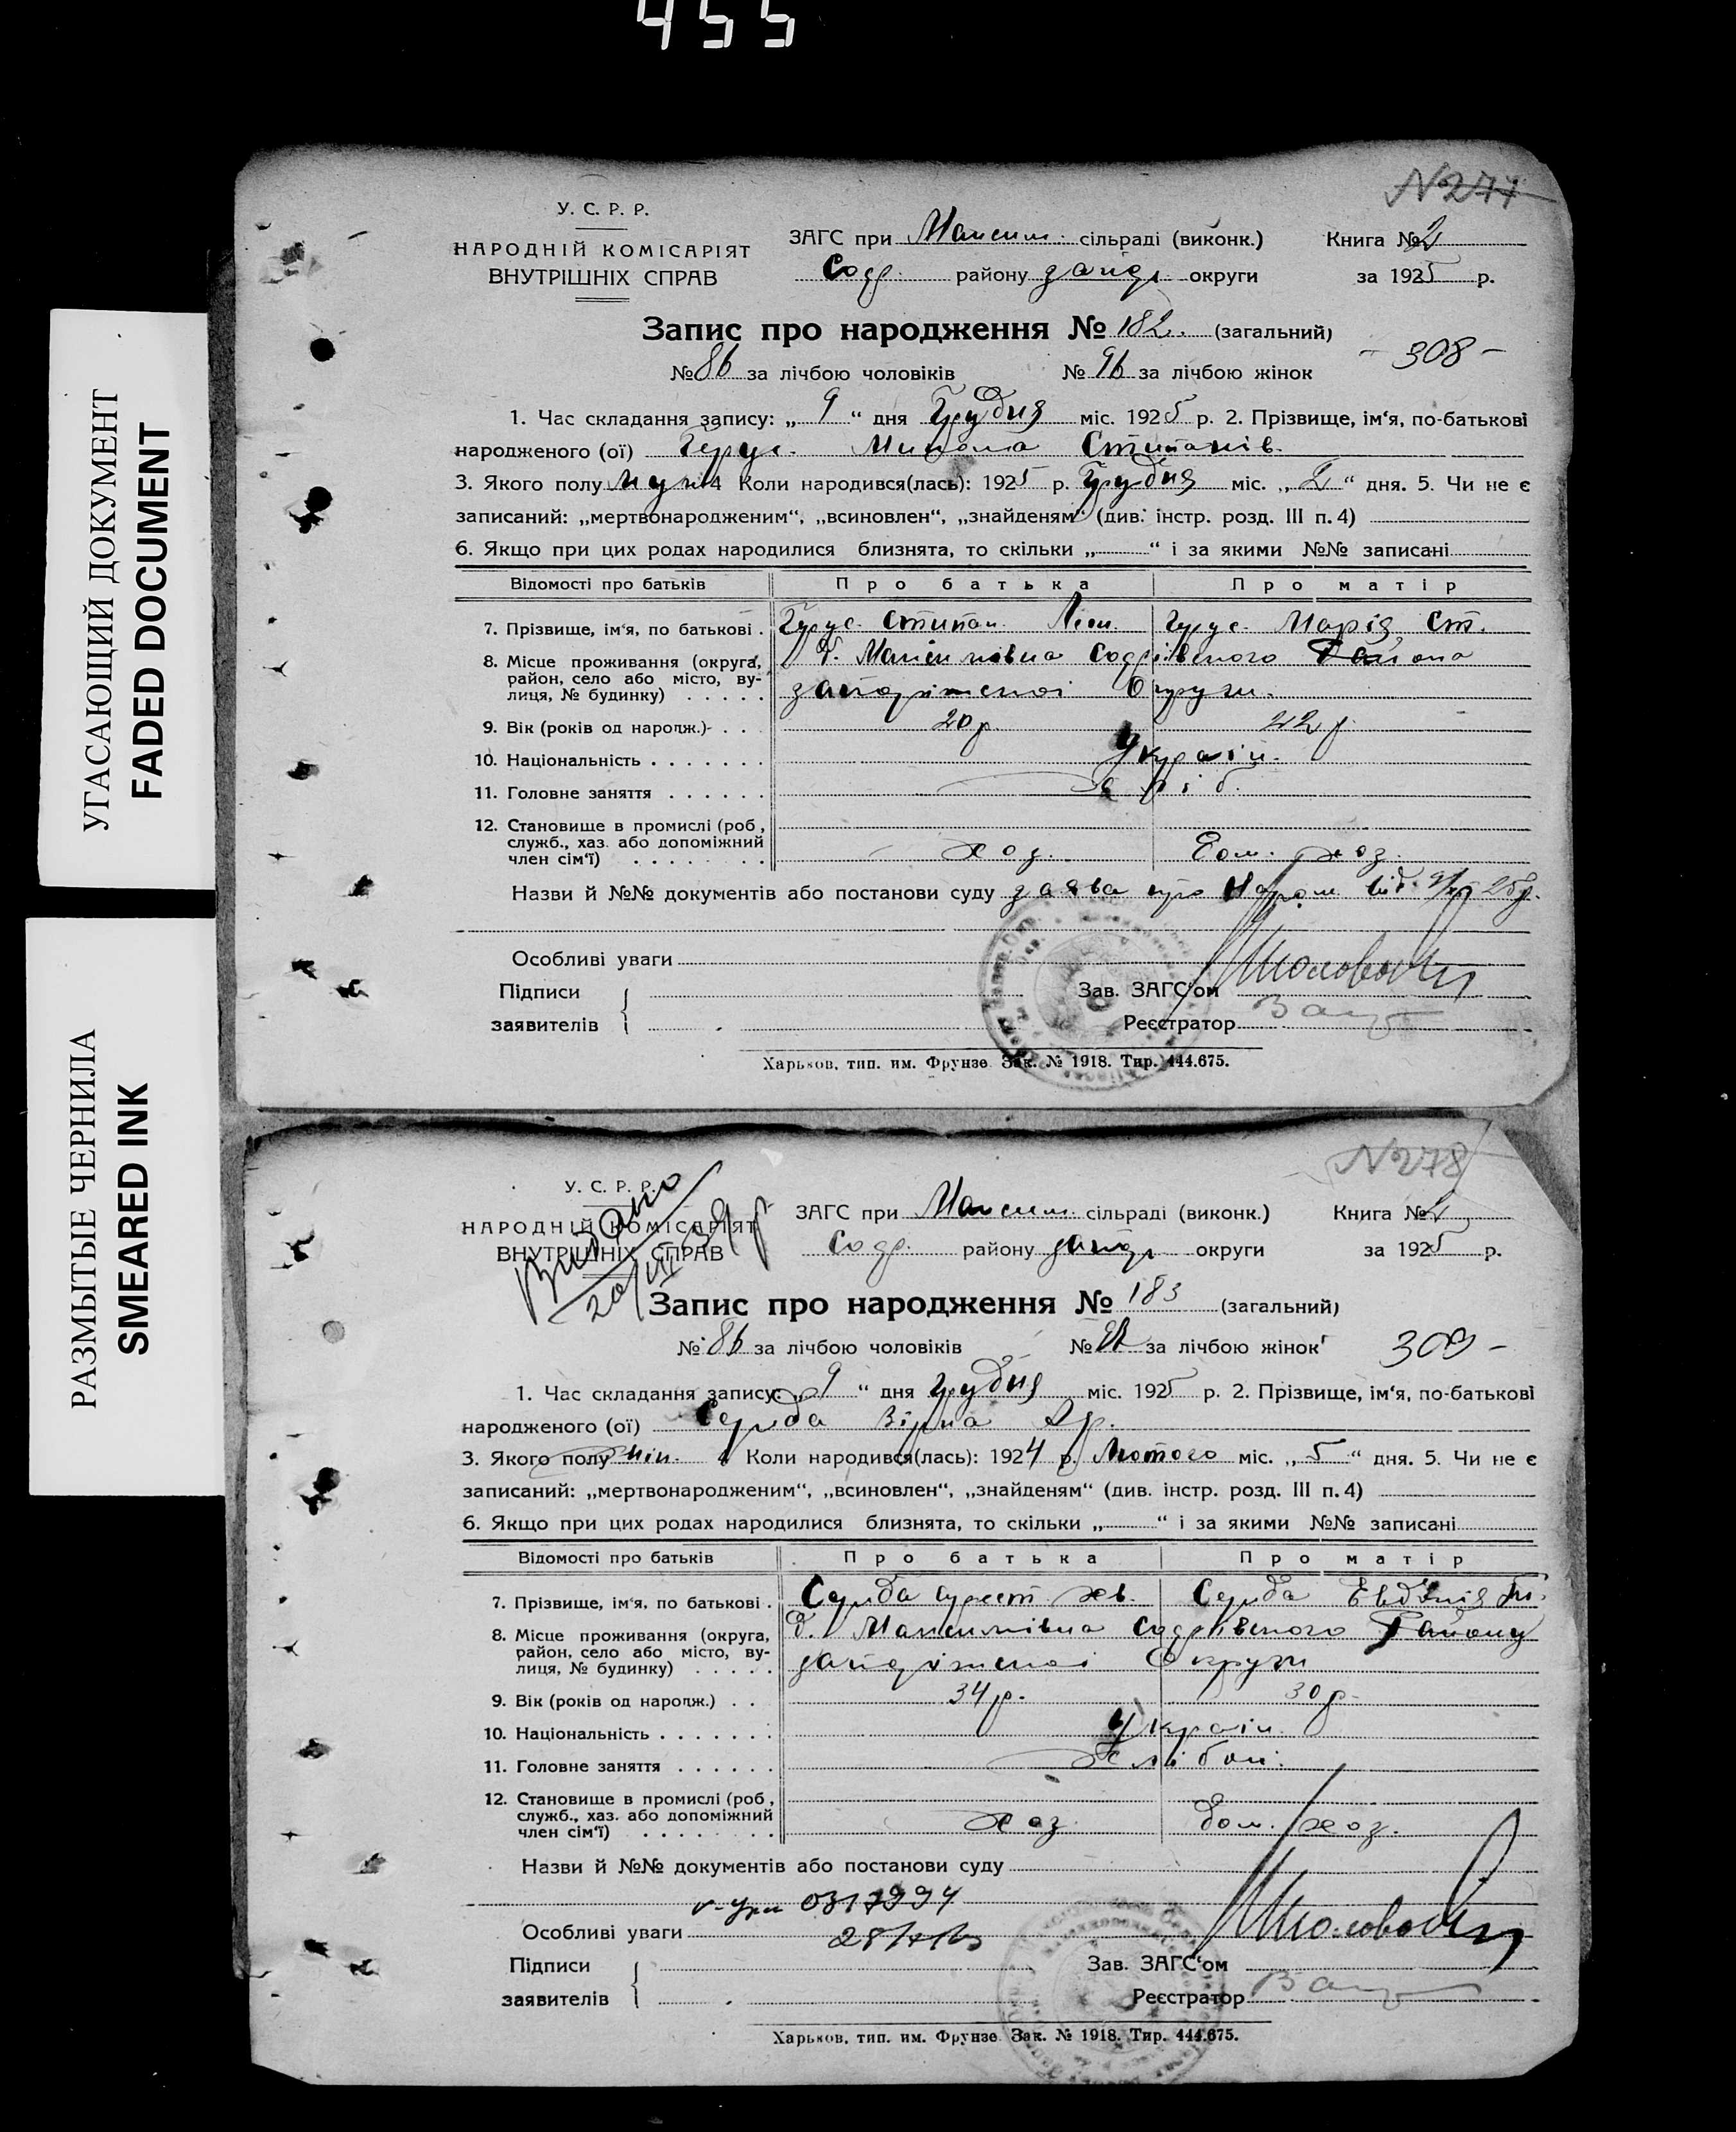 455
УГАСАЮЩИЙ ДОКУМЕНТ
FADED DOCUMENT
РАЗМЫТЫЕ ЧЕРНИЛА
SMEARED INK
№ 277
У. С. Р. Р.
НАРОДНІЙ КОМІСАРІЯТ
ВНУТРІШНІХ СПРАВ
ЗАГС при Максим. сільраді (виконк.) Книга №
району округи за 1925 р.
Запис про народження № 182. (загальний)
- 308 -
№ 86 за лічбою чоловіків № 96 за лічбою жінок
1. Час складання запису: „ 9 “ дня Грудня міс. 1925 р. 2. Прізвище, ім‘я, по-батькові
народженого (ої) Микола
3. Якого полу муж 4 Коли народився(лась): 1925 р. Грудня міс. „ 2 “ дня. 5. Чи не є
записаний: „мертвонародженим“, „всиновлен“, „знайденям“ (див. інстр. розд. III п. 4)
6. Якщо при цих родах народилися близнята, то скільки „ “ і за якими №№ записані
Відомості про батьків Про батька Про матір
7. Прізвище, ім‘я, по батькові . Степан Марія Ст.
8. Місце проживання (округа, район, село або місто, вулиця, № будинку) с. Максимівка Района
Запоріжської Округи.
9. Вік (років од нарощж.) . . . 20 р. 22 р.
10. Національність . . . . . . . Україн.
11. Головне заняття . . . . . .
12. Становище в промислі (роб., служб., хаз. або допоміжний член сім‘ї) . . . . . . . . хоз. Дом. хоз.
Назви й №№ документів або постанови суду заява про Народж. від.
Особливі уваги
Підписи
заявителів
Зав. ЗАГС‘ом
Реєстратор
Харьков, тип. им. Фрунзе. Зак. № 1918. Тир. 444.675.
№ 278
Видано
У. С. Р. Р.
НАРОДНІЙ КОМІСАРІЯТ
ВНУТРІШНІХ СПРАВ
ЗАГС при Максим. сільраді (виконк.) Книга №
району округи за 1925 р.
Запис про народження № 183 (загальний)
№ 86 за лічбою чоловіків № за лічбою жінок 309 -
1. Час складання запису: „ 9 “ дня Грудня міс. 1925 р. 2. Прізвище, ім‘я, по-батькові
народженого (ої) Середа Віра
3. Якого полу жін. 4 Коли народився(лась): 1924 р. Лютого міс. „ 5 “ дня. 5. Чи не є
записаний: „мертвонародженим“, „всиновлен“, „знайденям“ (див. інстр. розд. III п. 4)
6. Якщо при цих родах народилися близнята, то скільки „ “ і за якими №№ записані
Відомості про батьків Про батька Про матір
7. Прізвище, ім‘я, по батькові . Середа Середа
8. Місце проживання (округа, район, село або місто, вулиця, № будинку) с. Максимівка Району
Запоріжської Округи
9. Вік (років од нарощж.) . . 34 р. 30 р.
10. Національність . . . . . . . Україн.
11. Головне заняття . . . . . . Хлібор.
12. Становище в промислі (роб., служб., хаз. або допоміжний член сім‘ї) . . . . . . . . хоз Дом. хоз.
Назви й №№ документів або постанови суду
0317994
Особливі уваги
Підписи
заявителів
Зав. ЗАГС‘ом
Реєстратор
Харьков, тип. им. Фрунзе. Зак. № 1918. Тир. 444.675.